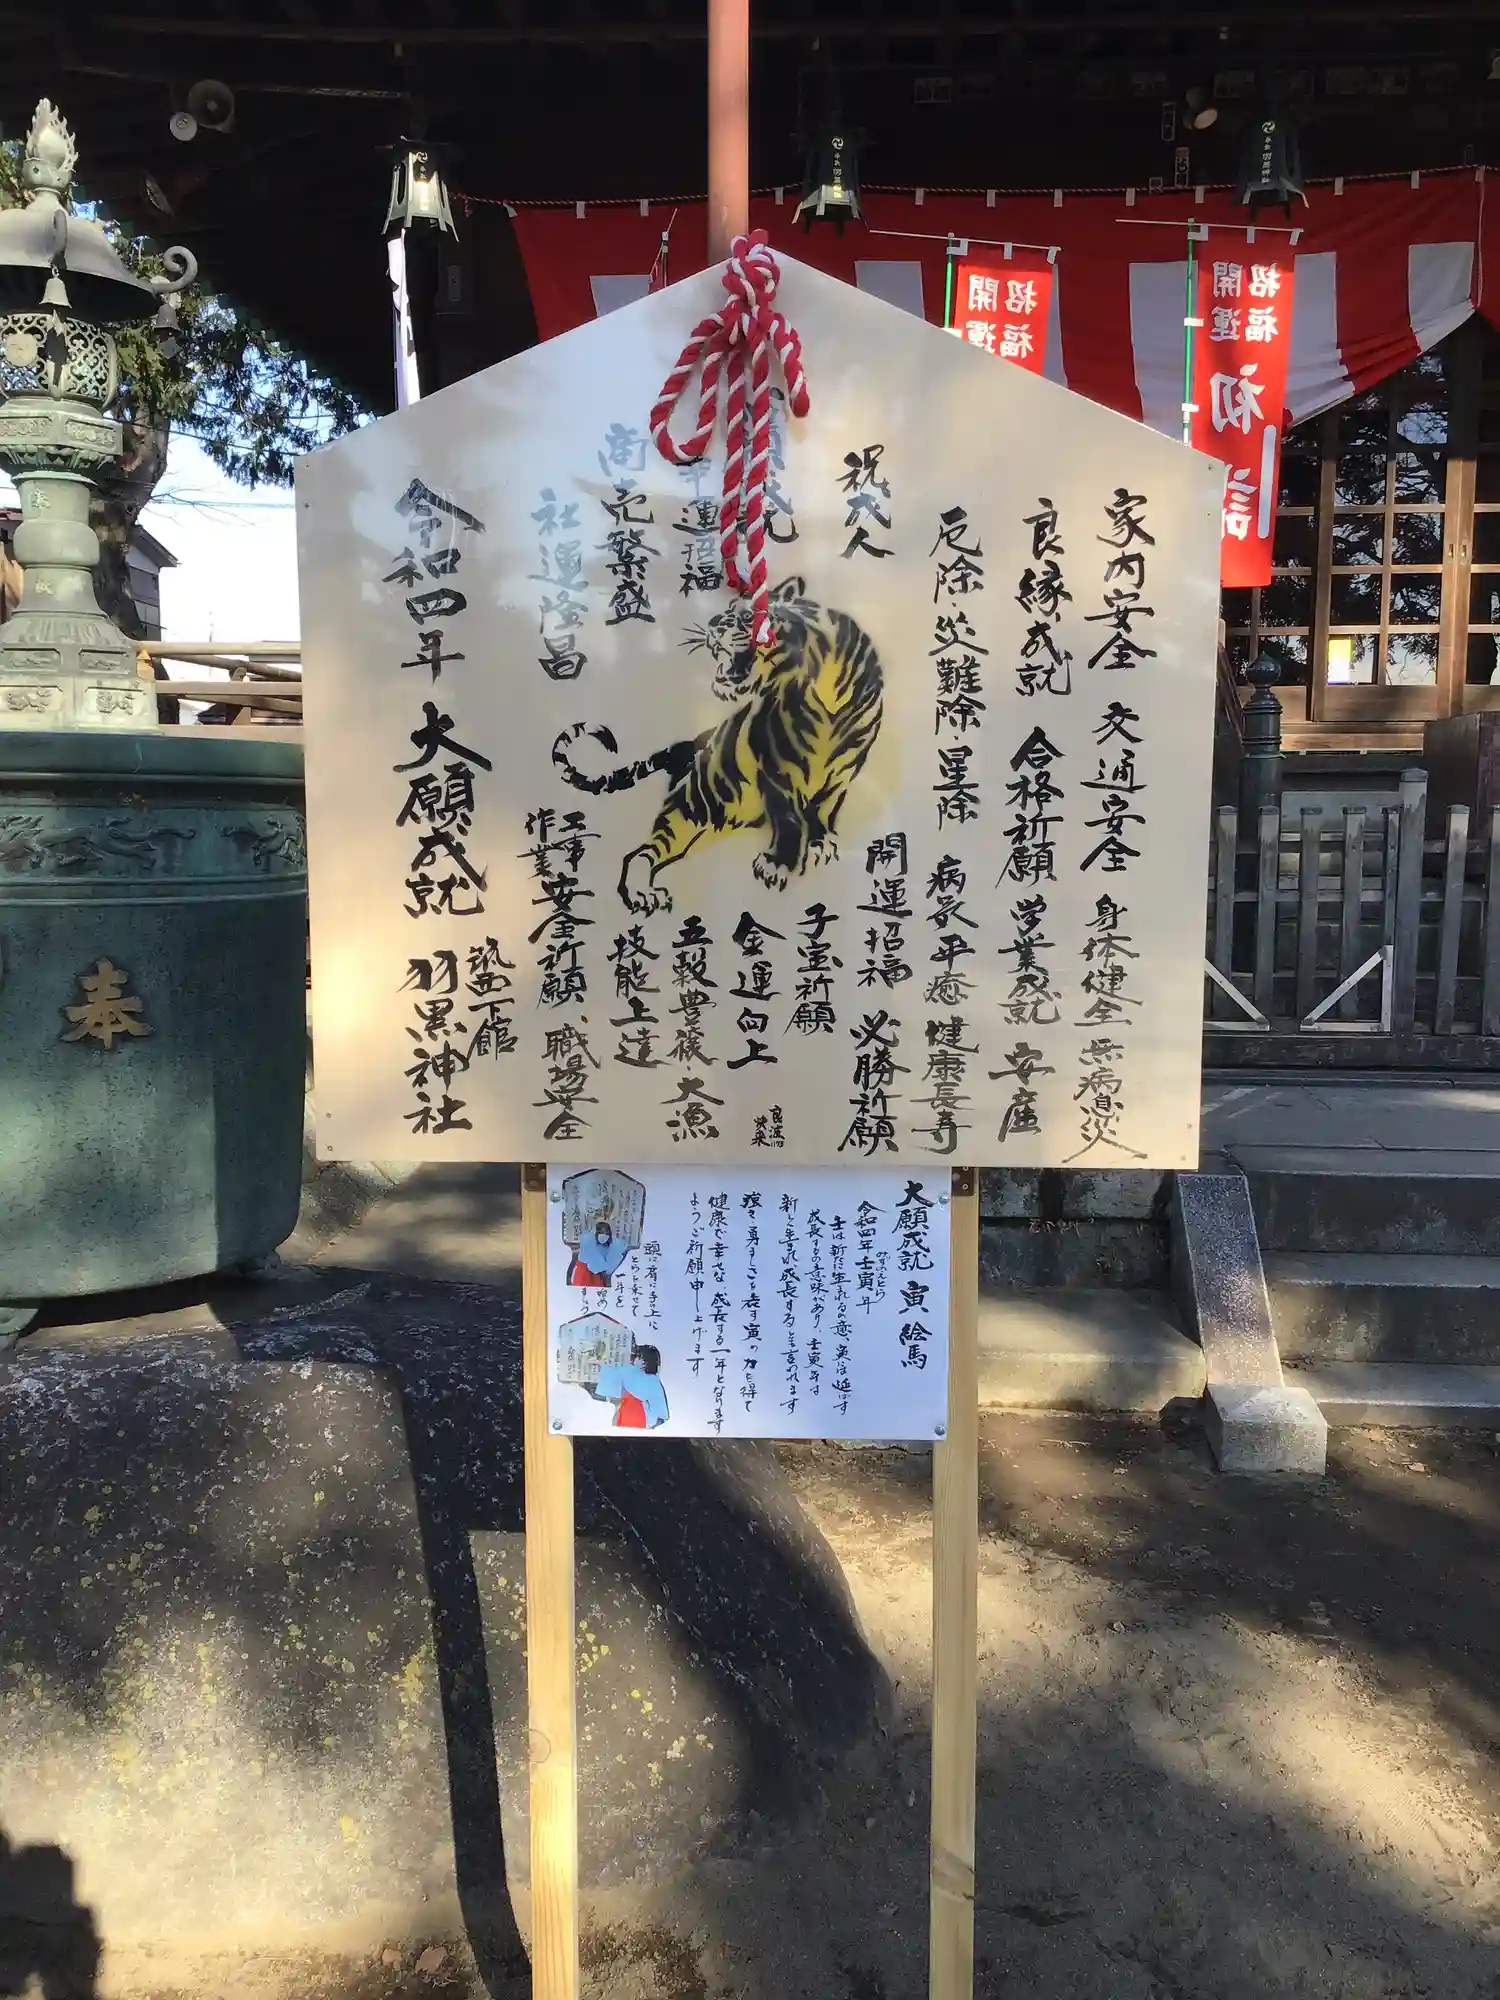 家内安全 交通安全 身体健全 無病息災
良縁成就 合格祈願 学業成就 安産
厄除・災難除・星除 病気平癒 健康長寿
祝成人
開運招福 必勝祈願
子宝祈願
金運向上
運招福
五穀豊穣・大漁
商売繁盛
技能上達
社運隆昌
工事
作業
安全祈願、職場安全
令和四年 大願成就 筑西下館 羽黒神社
大願成就 寅 絵馬
令和四年 壬寅年
みずのえとら
壬は新たに生れるの意、寅は延ばす
成長するの意味があり、壬寅年は
新しく生まれ成長すると言われます
強さ、勇ましさを表す寅の力を得て
健康で幸せな成長する一年となります
ようご祈願申し上げます
奉
招福
開運
招福
開運
初詣